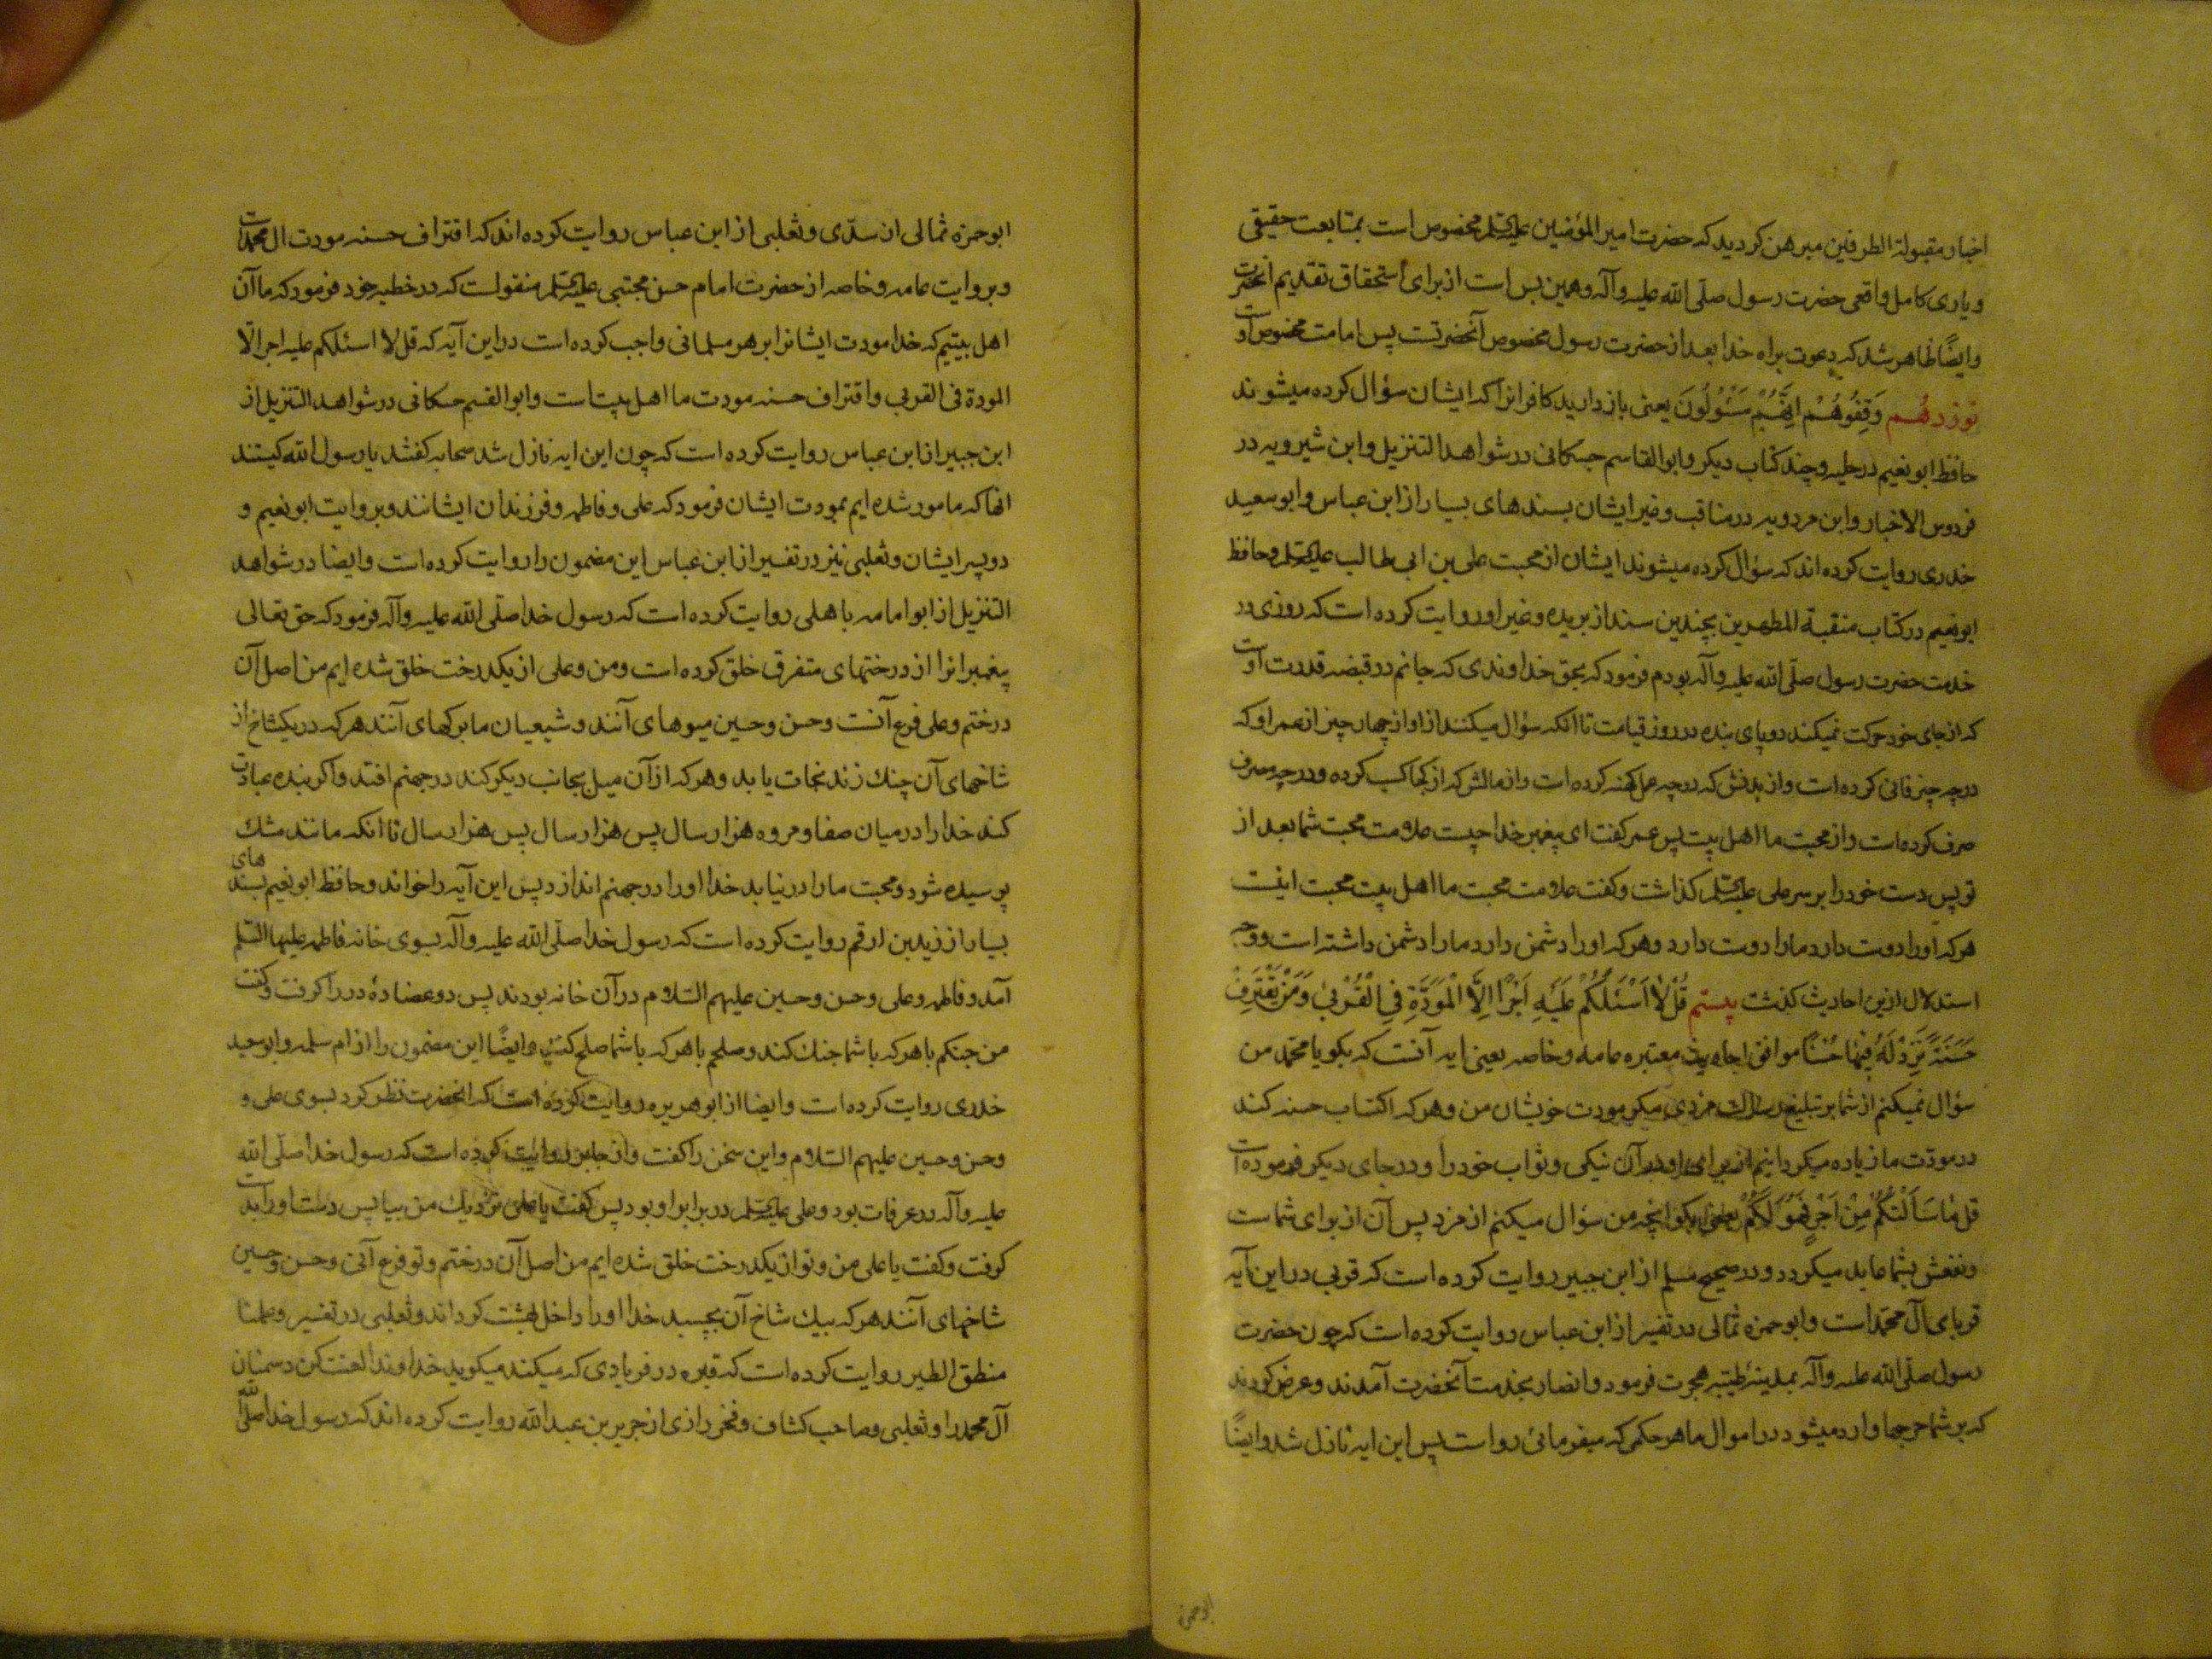 اخبار مقبولة الطرفین مبرهن کردید که حضرت امیر المؤمنین علیه السلم مخصوص است بمتابعت حقیقی
و یاری کامل واقعی حضرت رسول صلّی الله علیه وآله وهمین بس است از برای استحقاق تقدیم آنحضرت
وایضًا ظاهر شد که دعوت براه خدا بعد از حضرت رسول مخصوص آنحضرتست پس امامت مخصوص اوست
نوزدهم وَقِفُوهُمْ اِنَّهُمْ مَسْئُولُونَ یعنی بازدارید کافرانرا که ایشان سؤال کرده میشوند
حافظ ابو نعیم در حلیه و چند کتاب دیکر و ابوالقاسم حسکانی در شواهد التنزیل و ابن شیرویه در
فردوس الاخبار و ابن مردویه در مناقب و غیر ایشان بسندهای بسیار از ابن عباس و ابو سعید
خدری روایت کرده اند که سؤال کرده میشوند ایشان از محبت علی بن ابی طالب علیه السلم و حافظ
ابو نعیم در کتاب منقبة المطهرین بچندین سند از بریده و غیر او روایت کرده است که روزی در
خدمت حضرت رسول صلّی الله علیه وآله بودم فرمود که بحق خداوندی که جانم در قبضه قدرت اوست
که از جای خود حرکت نمیکند دو پای بنده در روز قیامت تا انکه سؤال میکنند از او از چهار چیز از عمر او که
در چه چیز فانی کرده است و از بدنش که در چه عمل کهنه کرده است و از مالش که از کجا کسب کرده و در چه مصرف
صرف کرده است و از محبت ما اهل بیت پس عمر کفت ای پیغمبر خدا چیست علامت محبت شما بعد از
تو پس دست خود را بر سر علی علیه السلم کذاشت و کفت علامت محبت ما اهل بیت محبت اینست
هر که او را دوست دارد ما را دوست دارد و هر که او را دشمن دارد ما را دشمن داشته است و وجه
استدلال ازین احادیث کذشت بیستم قُلْ لا اَسْئَلُكُمْ عَلَیْهِ اَجْرًا اِلَّا الْمَوَدَّةَ فِی الْقُرْبیٰ وَمَنْ یَقْتَرِفْ
حَسَنَةً نَزِدْ لَهُ فِیهَا حُسْنًا موافق احادیث معتبره عامه و خاصه یعنی ایه آنست که بکو یا محمّد من
سؤال نمیکنم از شما بر تبلیغ رسالت مزدی مکر مودت خویشان من و هر که اکتساب حسنه کند
در مودّت ما زیاده میکردانیم از برای او در آن نیکی و ثواب خود را و در جای دیکر فرموده است
قل مٰا سَأَلْتُكُمْ مِنْ اَجْرٍ فَهُوَ لَكُمْ یعنی بکو انچه من سؤال میکنم از مزد پس آن از برای شماست
و نفعش بشما عاید میکردد و در صحیح مسلم از ابن جبیر روایت کرده است که قربی در این آیه
قربای آل محمّد است و ابو حمزه ثمالی در تفسیر از ابن عباس روایت کرده است که چون حضرت
رسول صلّی الله علیه وآله بمدینهٔ طیّبه هجرت فرمود و انصار بخدمت آنحضرت آمدند و عرض کردند
که بر شما خرجها وارد میشود در اموال ما هر حکمی که میفرمائی رواست پس این ایه نازل شد و ایضًا
ابوحمزه
ابو حمزه ثمالی از سدّی و ثعلبی از ابن عباس روایت کرده اند که اقتراف حسنه مودت ال محمد است
و بروایت عامه و خاصه از حضرت امام حسن مجتبی علیه السلم منقولست که در خطبه خود فرمود که ما آن
اهل بیتیم که خدا مودت ایشانرا بر هر مسلمانی واجب کرده است در این آیه که قل لا اسئلکم علیه اجرا الّا
المودة فی القربی و اقتراف حسنه مودت ما اهل بیت است و ابو القسم حسکانی در شواهد التنزیل از
ابن جبیر از ابن عباس روایت کرده است که چون این ایه نازل شد صحابه کفتند یا رسول الله کیستند
انها که مامور شده ایم بمودت ایشان فرمود که علی و فاطمه و فرزندان ایشانند و بروایت ابو نعیم و
دو پسر ایشان و ثعلبی نیز در تفسیر از ابن عباس این مضمون را روایت کرده است و ایضا در شواهد
التنزیل از ابو امامه باهلی روایت کرده است که رسول خدا صلّی الله علیه وآله فرمود که حق تعالی
پیغمبرانرا از درختهای متفرق خلق کرده است و من و علی از یکدرخت خلق شده ایم من اصل آن
درختم و علی فرع آنست و حسن و حسین میوهای آنند و شیعیان ما برکهای آنند هر که در یکشاخ از
شاخهای آن چنك زند نجات یابد و هر که از آن میل بجانب دیکر کند در جهنم افتد و اکر بنده عبادت
کند خدا را در میان صفا و مروه هزار سال پس هزار سال پس هزار سال تا انکه مانند مشك
پوسیده شود و محبت ما را در نیابد خدا او را در جهنم اندازد پس این آیه را خواند و حافظ ابو نعیم بسندهای
بسیار از زید بن ارقم روایت کرده است که رسول خدا صلّی الله علیه وآله بسوی خانه فاطمه علیها السّلم
آمد و فاطمه و علی و حسن و حسین علیهم السّلام در آن خانه بودند پس دو عضادهٔ در را کرفت و کفت
من جنکم با هر که با شما جنك کند و صلحم با هر که با شما صلح کند و ایضًا این مضمون را از ام سلمه و ابو سعید
خدری روایت کرده است و ایضا از ابو هریره روایت کرده است که انحضرت نظر کرد بسوی علی و
و حسن و حسین علیهم السّلام و این سخن را کفت و از جابر روایت کرده است که رسول خدا صلّی الله
علیه وآله در عرفات بود و علی علیه السلم در برابر او بود پس کفت یا علی نزدیك من بیا پس دست او را بدست
کرفت و کفت یا علی من و تو از یکدرخت خلق شده ایم من اصل آن درختم و تو فرع آنی و حسن و حسین
شاخهای آنند هر که بیك شاخ آن بچسبد خدا او را داخل بهشت کرداند و ثعلبی در تفسیر و علمنا
منطق الطیر روایت کرده است که قبره در فریادی که میکند میکوید خداوندا لعنت کن دسمنان
آل محمد را و ثعلبی و صاحب کشاف و فخر رازی از جریر بن عبد الله روایت کرده اند که رسول خدا صلّی الله